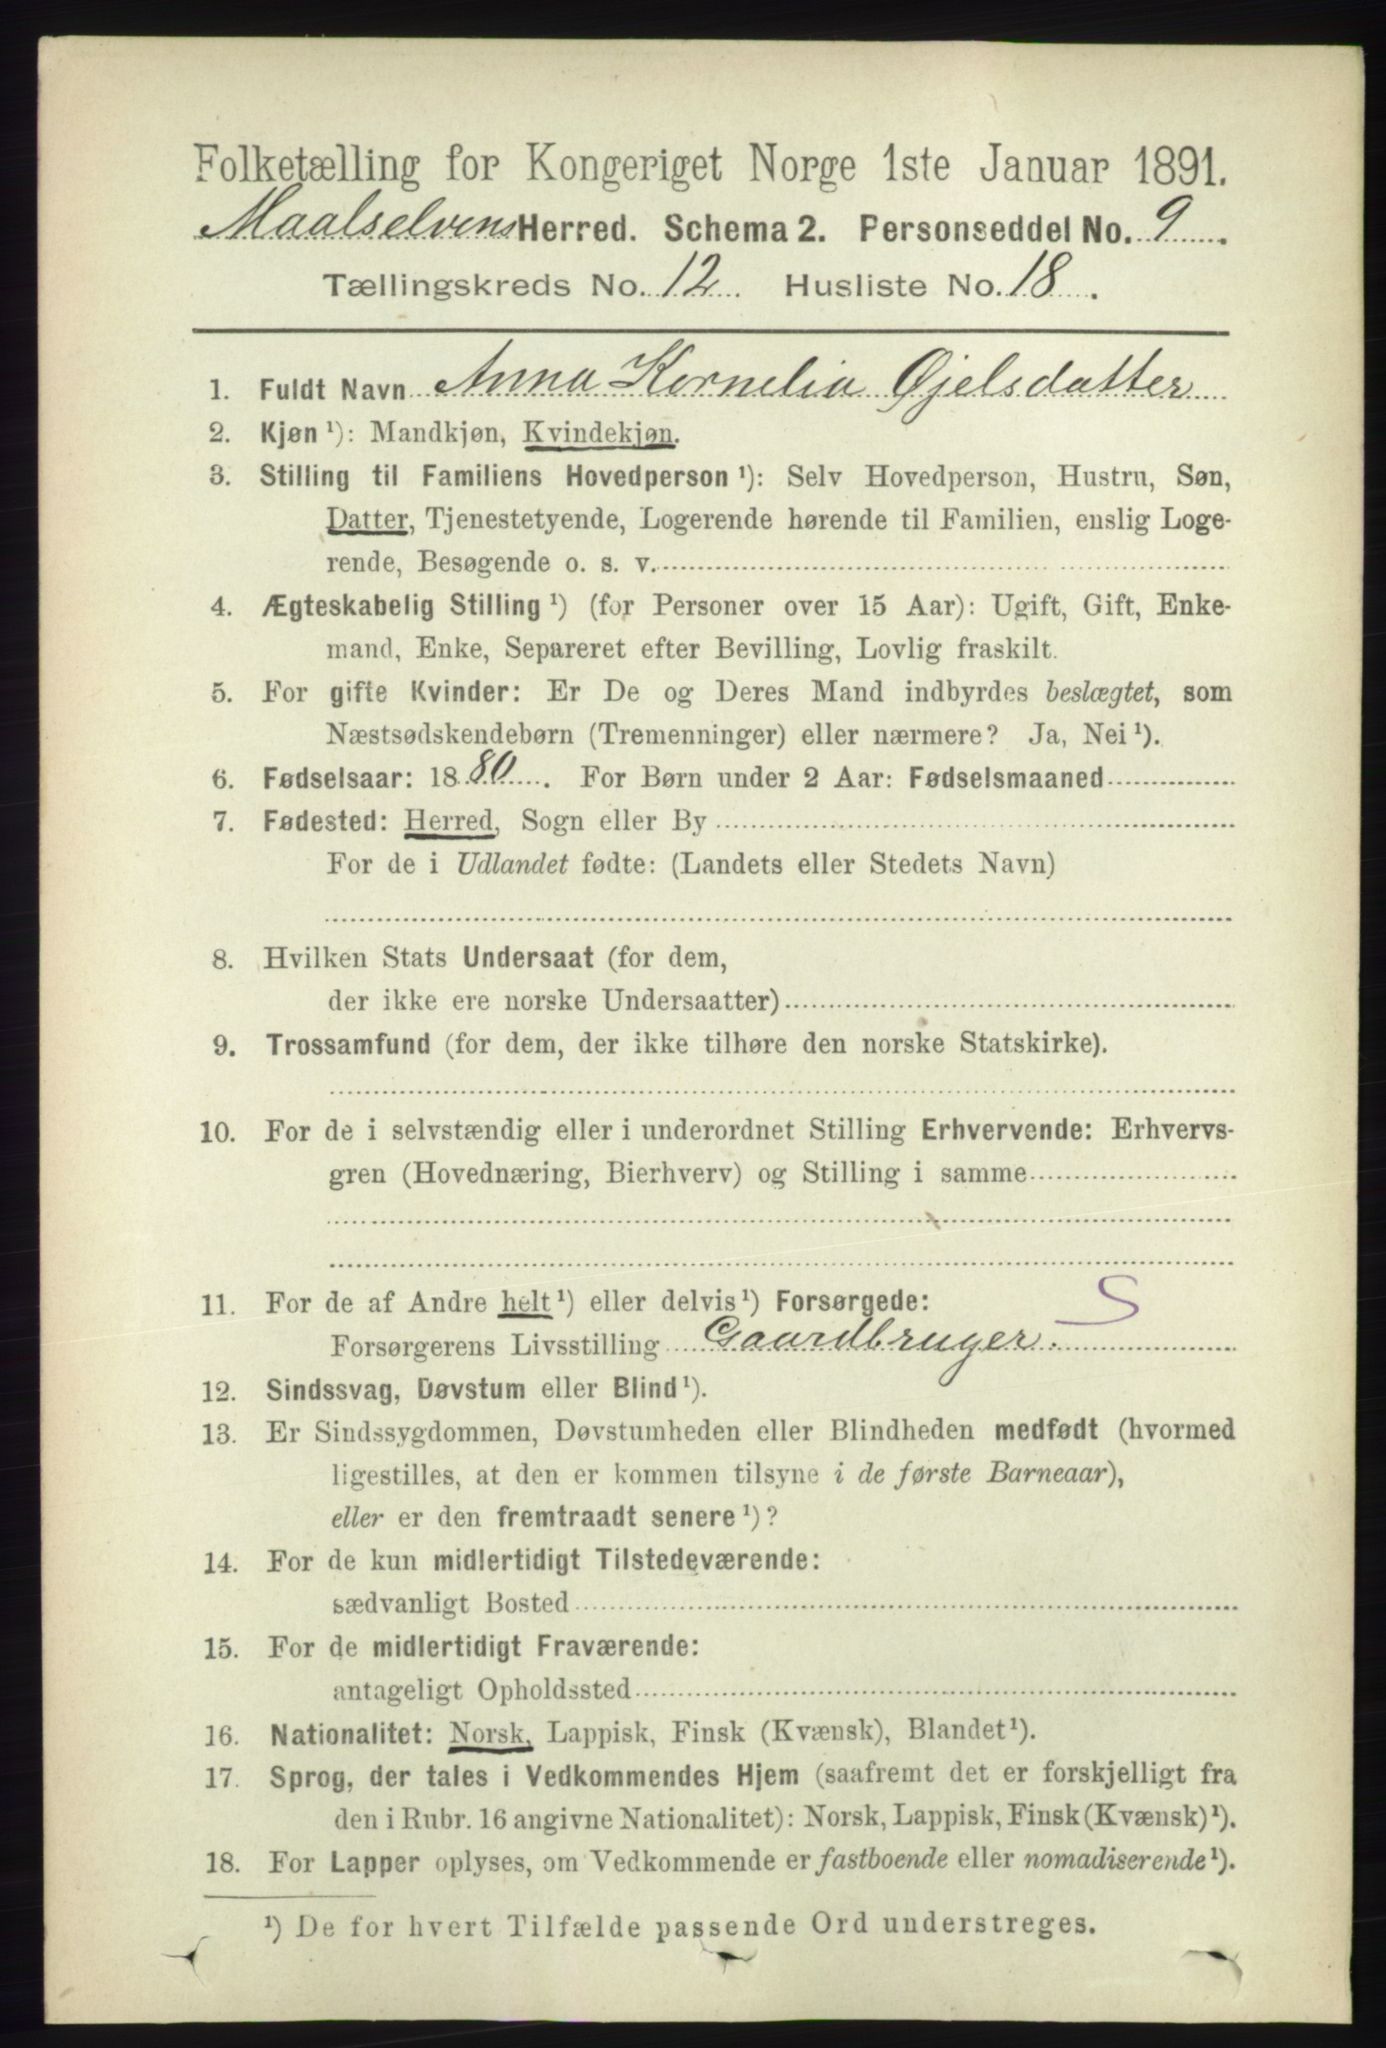 Folketælling for Kongeriget Norge 1ste Januar 1891.
Maalselvens Herred. Schema 2. Personseddel No. 9
Tællingskreds No. 12. Husliste No. 18.
1. Fuldt Navn Anna Kornelia Øjelsdatter
2. Kjøn ¹): Mandkjøn, Kvindekjøn.
3. Stilling til Familiens Hovedperson ¹): Selv Hovedperson, Hustru, Søn,
Datter, Tjenestetyende, Logerende hørende til Familien, enslig Loge-
rende, Besøgende o. s. v.
4. Ægteskabelig Stilling ¹) (for Personer over 15 Aar): Ugift, Gift, Enke-
mand, Enke, Separeret efter Bevilling, Lovlig fraskilt.
5. For gifte Kvinder: Er De og Deres Mand indbyrdes beslægtet, som
Næstsødskendebørn (Tremenninger) eller nærmere? Ja, Nei ¹).
6. Fødselsaar: 1880. For Børn under 2 Aar: Fødselsmaaned
7. Fødested: Herred, Sogn eller By
For de i Udlandet fødte: (Landets eller Stedets Navn)
8. Hvilken Stats Undersaat (for dem,
der ikke ere norske Undersaatter)
9. Trossamfund (for dem, der ikke tilhøre den norske Statskirke).
10. For de i selvstændig eller i underordnet Stilling Erhvervende: Erhvervs-
gren (Hovednæring, Bierhverv) og Stilling i samme
11. For de af Andre helt ¹) eller delvis ¹) Forsørgede: S
Forsørgerens Livsstilling Gaardbruger.
12. Sindssvag, Døvstum eller Blind ¹).
13. Er Sindssygdommen, Døvstumheden eller Blindheden medfødt (hvormed
ligestilles, at den er kommen tilsyne i de første Barneaar),
eller er den fremtraadt senere ¹)?
14. For de kun midlertidigt Tilstedeværende:
sædvanligt Bosted
15. For de midlertidigt Fraværende:
antageligt Opholdssted
16. Nationalitet: Norsk, Lappisk, Finsk (Kvænsk), Blandet ¹).
17. Sprog, der tales i Vedkommendes Hjem (saafremt det er forskjelligt fra
den i Rubr. 16 angivne Nationalitet): Norsk, Lappisk, Finsk (Kvænsk) ¹).
18. For Lapper oplyses, om Vedkommende er fastboende eller nomadiserende ¹).
¹) De for hvert Tilfælde passende Ord understreges.